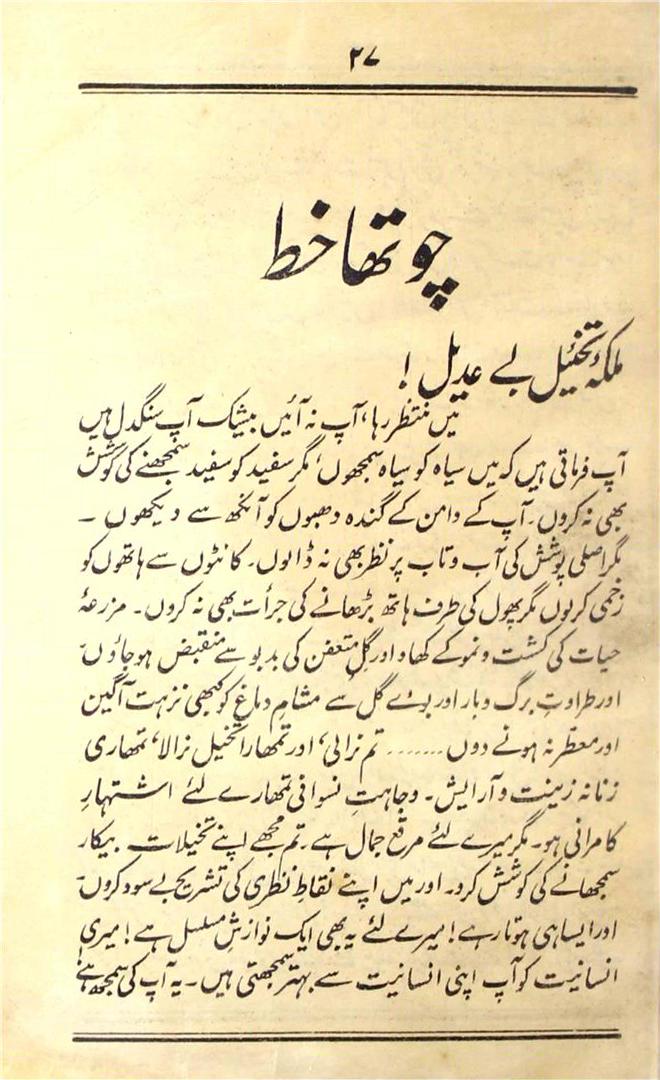 ۲۷
چوتھا خط
ملکۂ تخئیل بے عدیل !
میں منتظر رہا، آپ نہ آئیں بیشک آپ سنگدل ہیں
آپ فرماتی ہیں کہ میں سیاہ کو سیاہ سمجھوں، مگر سفید کو سفید سمجھنے کی کوشش
بھی نہ کروں۔ آپ کے دامن کے گندہ دھبوں کو آنکھ سے دیکھوں ۔
مگر اصلی پوشش کی آب و تاب پر نظر بھی نہ ڈالوں۔ کانٹوں سے ہاتھوں کو
زخمی کر لوں مگر پھول کی طرف ہاتھ بڑھانے کی جرأت بھی نہ کروں۔ مزرعۂ
حیات کی کشت و نمو کے کھاد اور گلِ متعفن کی بدبو سے منقبض ہو جاؤں،
اور طراوتِ برگ و بار اور بوئے گل سے مشامِ دماغ کو کبھی نزہت آگین
اور معطّر نہ ہونے دوں ....... تم نرالی، اور تمھارا تخئیل نرالا، تمھاری
زنانہ زینت و آرایش۔ وجاہتِ نسوانی تمھارے لئے اشتہارِ
کامرانی ہو۔ مگر میرے لئے مرقعِ جمال ہے۔ تم مجھے اپنے تخیلات بیکار
سمجھانے کی کوشش کرو۔ اور میں اپنے نقاطِ نظری کی تشریح بے سود کروں،
اور ایسا ہی ہوتا رہے! میرے لئے یہ بھی ایک نوازشِ مسلسل ہے! میری
انسانیت کو آپ اپنی انسانیت سے بہتر سمجھتی ہیں۔ یہ آپ کی سمجھ ہے!